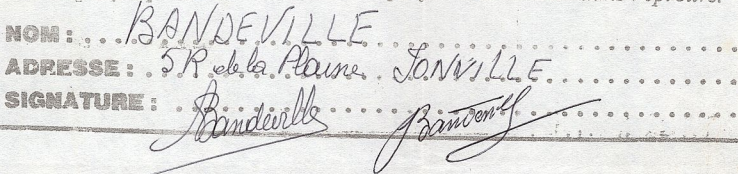 NOM: BANDEVILLE
ADRESSE: 5 R de la Plaine JONVILLE
SIGNATURE: Bandeville